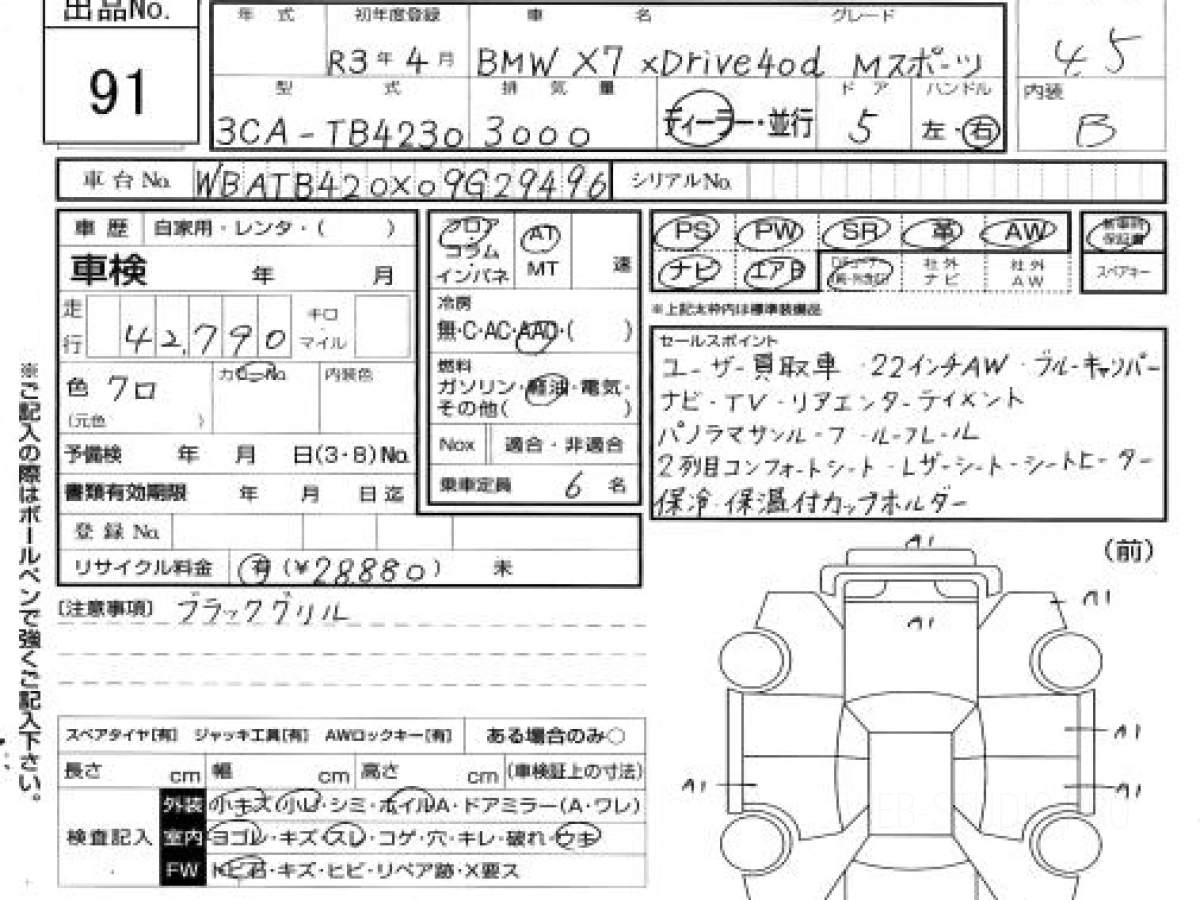 出品No.
91
年式 初年度登録 車名 グレード
R3年4月 BMW X7 xDrive40d Mスポーツ
45
型式 排気量 ドア ハンドル
3CA-TB4230 3000 ディーラー・並行 5 左・右
内装
B
車台No. WBATB420X09G29496 シリアルNo.
車歴 自家用・レンタ・( )
車検 年 月
走行 42,790 キロ マイル
色 クロ カラーNo. 内装色
(元色 )
予備検 年 月 日(3・8)No.
書類有効期限 年 月 日迄
登録No.
リサイクル料金 有 (¥28880) 未
フロア コラム インパネ AT MT 速
冷房
無・C・AC・AAC・( )
燃料
ガソリン・軽油・電気・
その他( )
Nox 適合・非適合
乗車定員 6 名
PS PW SR 革 AW 新車時保証書
ナビ エアB 社外ナビ 社外AW スペアキー
※上記太枠内は標準装備品
セールスポイント
ユーザー買取車・22インチAW・ブルーキャリパー
ナビ・TV・リアエンターテイメント
パノラマサンルーフ・ルーフレール
2列目コンフォートシート・レザーシート・シートヒーター
保冷・保温付カップホルダー
[注意事項] ブラックグリル
※ご記入の際はボールペンで強くご記入下さい。
スペアタイヤ[有] ジャッキ工具[有] AWロックキー[有] ある場合のみ○
長さ cm 幅 cm 高さ cm (車検証上の寸法)
検査記入
外装 小キズ・小凹・シミ・ホイルA・ドアミラー(A・ワレ)
室内 ヨゴレ・キズ・スレ・コゲ・穴・キレ・破れ・ウキ
FW トビ石・キズ・ヒビ・リペア跡・X要ス
(前)
A1
A1
A1
A1
A1
A1